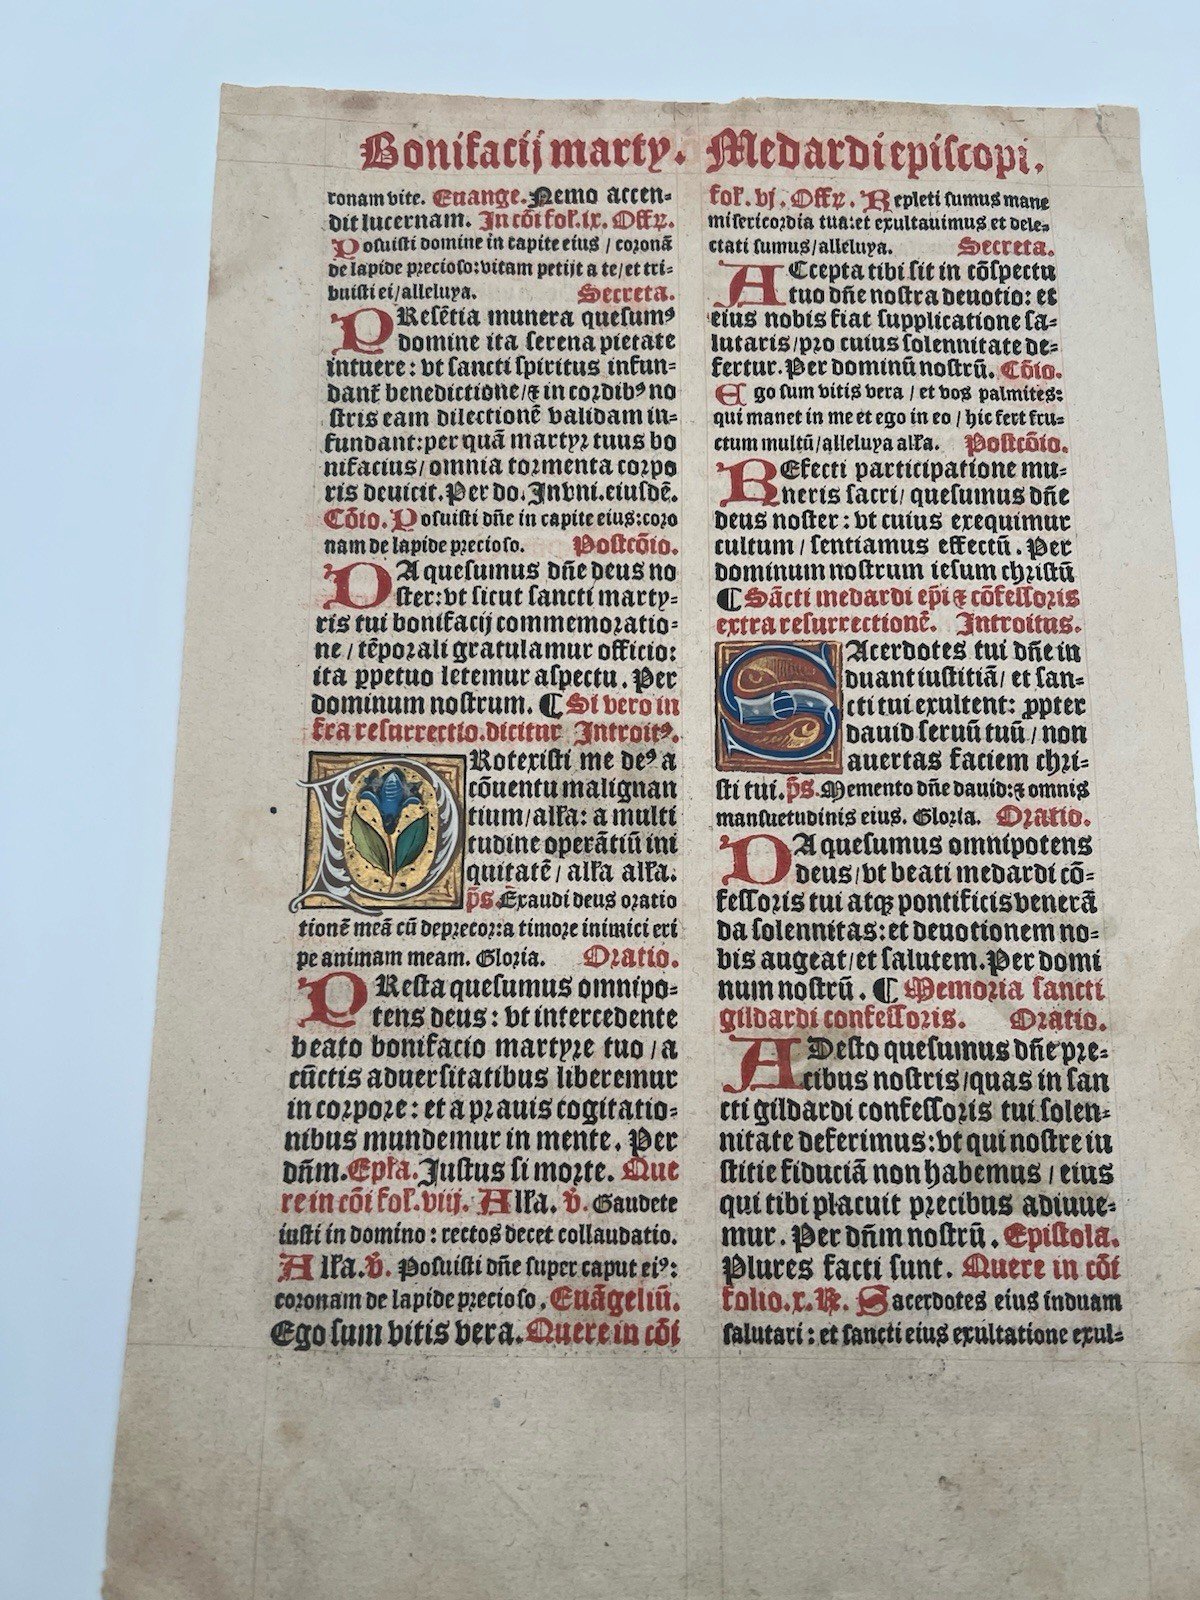 Bonifacij marty. Medardi episcopi.
ronam vite. Euange. Nemo accen-
dit lucernam. In cõi fol. ix. Offꝝ.
Posuisti domine in capite eius / coronã
de lapide precioso: vitam petijt a te / et tri-
buisti ei / alleluya. Secreta.
PResẽtia munera quesumꝰ
domine ita serena pietate
intuere: vt sancti spiritus infun-
dant̃ benedictione / ⁊ in cordibꝰ no
stris eam dilectionẽ validam in-
fundant: per quã martyr tuus bo
nifacius / omnia tormenta corpo
ris deuicit. Per do. In vni. eiusdẽ.
Cõio. Posuisti dñe in capite eius: coro
nam de lapide precioso. Postcõio.
DA quesumus dñe deus no
ster: vt sicut sancti marty-
ris tui bonifacij commemoratio-
ne / tẽporali gratulamur officio:
ita ꝑpetuo letemur aspectu. Per
dominum nostrum. ¶ Si vero in
fra resurrectio. dicitur Introitꝰ.
PRotexisti me deꝰ a
cõuentu malignan
tium / alľa: a multi
tudine operãtiũ ini
quitatẽ / alľa alľa.
p̃s. Exaudi deus oratio
tionẽ meã cũ deprecor: a timore inimici eri
pe animam meam. Gloria. Oratio.
PResta quesumus omnipo-
tens deus: vt intercedente
beato bonifacio martyre tuo / a
cũctis aduersitatibus liberemur
in corpore: et a prauis cogitatio-
nibus mundemur in mente. Per
dñm. Epľa. Justus si morte. Que
re in cõi fol. viij. Alľa. v̾. Gaudete
iusti in domino: rectos decet collaudatio.
Alľa. v̾. Posuisti dñe super caput eiꝰ:
coronam de lapide precioso. Euãgeliũ.
Ego sum vitis vera. Quere in cõi
fol. vj. Offꝝ. Repleti sumus mane
misericordia tua: et exultauimus et dele-
ctati sumus / alleluya. Secreta.
ACcepta tibi sit in cõspectu
tuo dñe nostra deuotio: et
eius nobis fiat supplicatione sa-
lutaris / pro cuius solennitate de-
fertur. Per dominũ nostrũ. Cõio.
Ego sum vitis vera / et vos palmites:
qui manet in me et ego in eo / hic fert fru-
ctum multũ / alleluya alľa. Postcõio.
REfecti participatione mu-
neris sacri / quesumus dñe
deus noster: vt cuius exequimur
cultum / sentiamus effectũ. Per
dominum nostrum iesum christũ
¶ Sãcti medardi epi̾ ⁊ cõfessoris
extra resurrectionẽ. Introitus.
SAcerdotes tui dñe in
duant iustitiã / et san-
cti tui exultent: ꝓpter
dauid seruũ tuũ / non
auertas faciem chri-
sti tui. p̃s. Memento dñe dauid: ⁊ omnis
mansuetudinis eius. Gloria. Oratio.
DA quesumus omnipotens
deus / vt beati medardi cõ-
fessoris tui atqꝫ pontificis venerã
da solennitas: et deuotionem no-
bis augeat / et salutem. Per domi
num nostrũ. ¶ Memoria sancti
gildardi confessoris. Oratio.
ADesto quesumus dñe pre-
cibus nostris / quas in san
cti gildardi confessoris tui solen-
nitate deferimus: vt qui nostre iu
stitie fiduciã non habemus / eius
qui tibi placuit precibus adiuue-
mur. Per dñm nostrũ. Epistola.
Plures facti sunt. Quere in cõi
folio. x. ℞. Sacerdotes eius induam
salutari: et sancti eius exultatione exul-